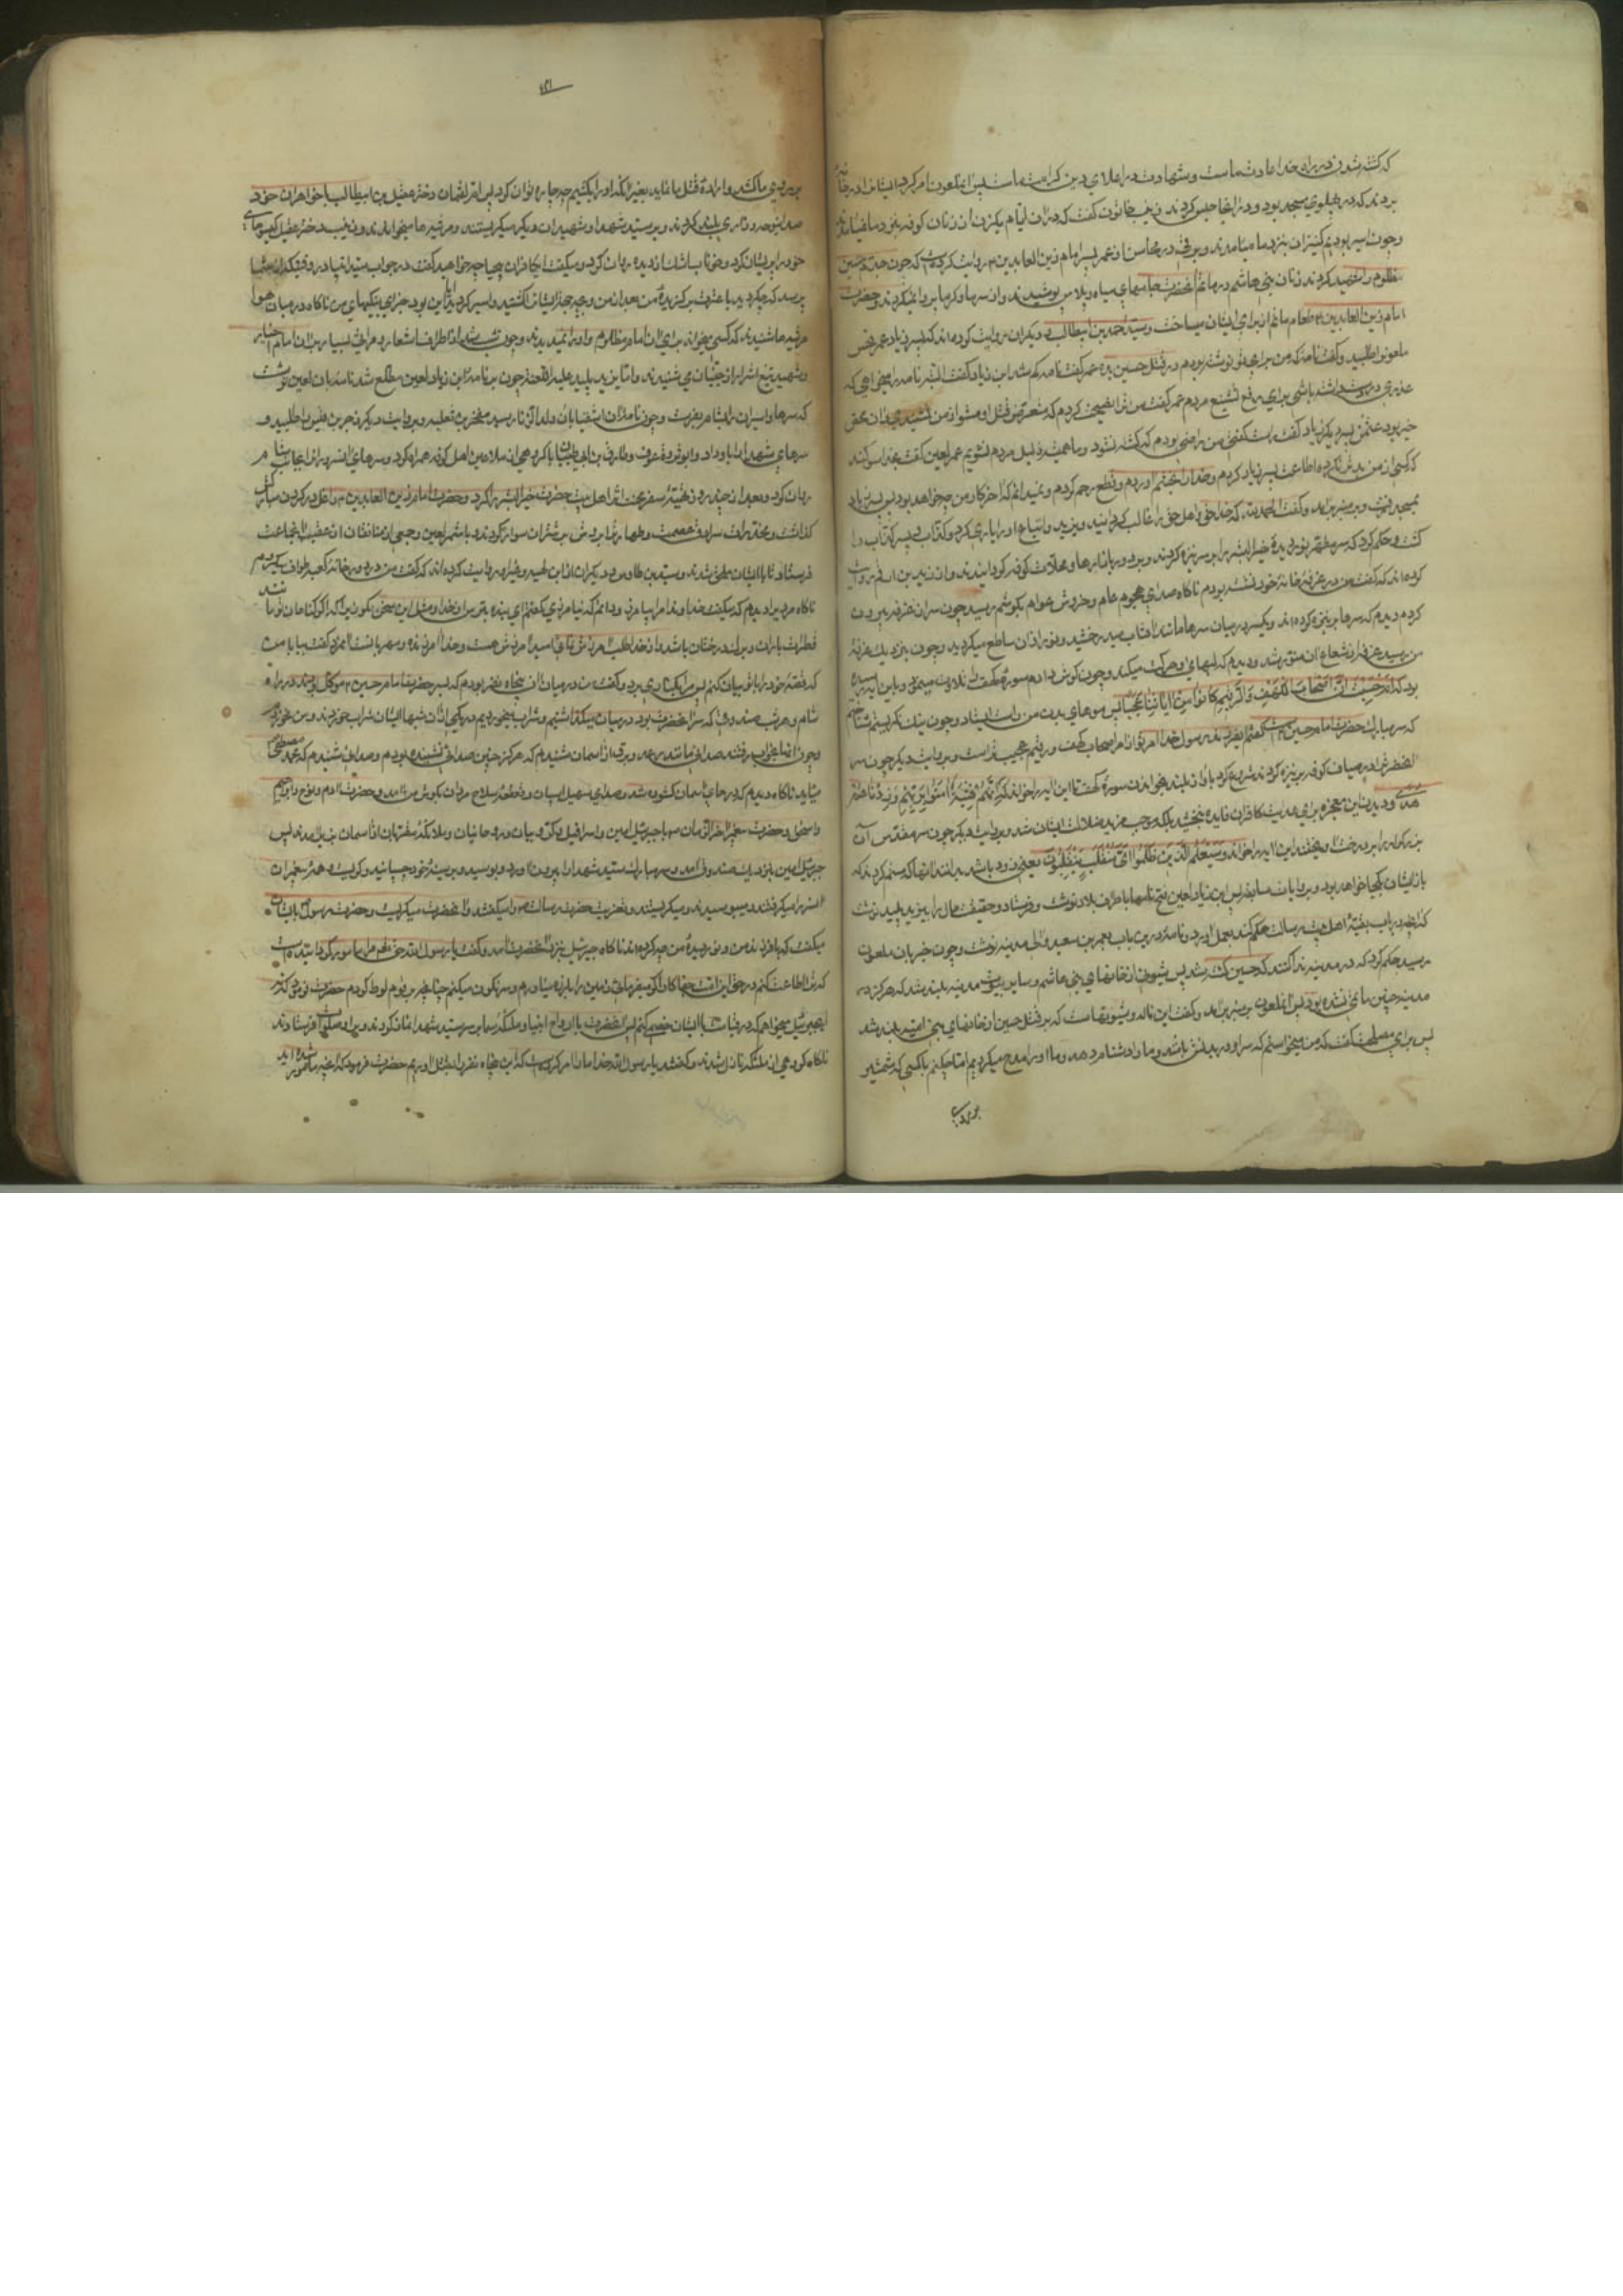 که کشته شدن در راه خدا عادت ماست و شهادت در اعلای دین کرامت ماست پس آن ملعون امر کرد ایشان را در خانه
بردند که در پهلوی مسجد بود و در آنجا حبس کردند زینب خاتون گفت که در آن ایام یکزن از زنان کوفه بنزد ما نمیامدند
و چون اسیر بودیم کنیزان بنزد ما میامدند و برقی در محاسن از عمر پسر امام زین العابدین روایت کرده است که چون جدم حسین
مظلوم را شهید کردند زنان بنی هاشم در ماتم آنحضرت جامهای سیاه و پلاس پوشیدند و از سرما و گرما پروا نمیکردند و حضرت
امام زین العابدین طعام ماتم از برای ایشان میساخت و سید و دیگران روایت کرده اند که پسر زیاد عمر نحس
ملعونرا طلبید و گفت نامه که من برای تو نوشته بودم در قتل حسین بده عمر گفت نامه گم شد ابن زیاد گفت البته نامه را میخواهی که
عذری داشته باشی برای رفع تشنیع مردم عمر گفت من ترا نصیحت کردم که متعرض قتل او مشو از من نشنیدی
عثمن پسر دیگر زیاد گفت راست گفتی من راضی بودم که کشته نشود و ما همیشه ذلیل مردم نشویم عمر لعین گفت بخدا سوگند
که کسی از من بدتر نکرده اطاعت پسر زیاد کردم و خدا را بخشم آوردم و قطع رحم کردم و نمیدانم که آخر کار من چه خواهد بود پس پسر زیاد
بمسجد رفت و بر منبر برآمد و گفت الحمد لله که خدا حق و اهل حق را غالب گردانید و یزید و اتباع او را یاری کرد و کذاب پسر کذاب را
کشت و حکم کرد که سر مطهر نور دیدهٔ خیر البشر را بر سر نیزه کردند و در بازارها و محلات کوفه گردانیدند و از زید بن ارقم روایت
کرده اند که گفت من در غرفهٔ خانهٔ خود نشسته بودم ناگاه صدای هجوم عام و خروش عوام بگوشم رسید چون سر از غرفه بیرون
کردم دیدم که سرها بر نیزه کرده اند و یکسر در میان سرها مانند آفتاب میدرخشید و نور از آن ساطع میگردید و چون بنزدیک غرفهٔ
من رسید غرفه از شعاع آن منور شد و دیدم که لبهای او حرکت میکند و چون گوش دادم سورهٔ کهف تلاوت مینمود و باین آیه رسیده
بود که ام حسبت ان اصحاب الکهف و الرقیم کانوا من آیاتنا عجبا پس موهای بدن من راست ایستاد و چون نیک نگریستم شناختم
که سر مبارک حضرت امام حسین است گفتم ای فرزند رسول خدا امر تو از امر اصحاب کهف و رقیم عجیب تر است و بروایت دیگر چون سر
آنحضرت را در میان کوفه بر نیزه کردند شروع کرد باواز بلند بخواندن سورهٔ کهف تا این آیه را خواند که انهم فتیة امنوا بربهم و زدناهم
هدی و دیدن این معجزه برای هدایت کافران فایده نبخشید بلکه موجب مزید ضلالت ایشان شد و بروایت دیگر چون سر مقدس آن
بزرگوار را بر درخت آویختند این آیه را خواند و سیعلم الذین ظلموا ای منقلب ینقلبون یعنی زود باشد بدانند آنها که ستم کردند که
بازگشت ایشان بکجا خواهد بود و بروایات سابقه پس ابن زیاد لعین فتح نامها باطراف بلاد نوشت و فرستاد و حقیقت حال را بیزید پلید نوشت
که آنچه در باب بقیهٔ اهل بیت رسالت حکم کند بعمل آورد و نامهٔ در این باب بعمر بن سعید والی مدینه نوشت و چون خبر بان ملعون
رسید حکم کرد که در مدینه ندا کنند که حسین کشته شد پس شیون از خانهای بنی هاشم و سایر مدینه بلند شد که هرگز در
مدینه چنین ماتمی نشده بود پس آن ملعون بر منبر برآمد و گفت این ناله و شیونهاست که بر قتل حسین از خانهای بنی امیه بلند شد
پس برای مصلحت گفت که من میخواستم که سر او در بدنش باشد و ما را دشنام دهد و ما او را مدح میکردیم اما چکنم با کسی که شمشیر
بر روی
بر روی ما کشد و ارادهٔ قتل ما نماید بغیر از آنکه او را بکشیم چه چاره توان کرد پس ام لقمان دختر عقیل بن ابیطالب با خواهران خود
صدا بنوحه و زاری بلند کردند و بر سید شهدا و شهیدان دیگر میگریستند و مرثیه ها میخواندند و زینب دختر عقیل گیسوهای
خود را پریشان کرد و خوناب اشک از دیده روان کرد و میگفت ای کافران بیحیا چه خواهید گفت در جواب سید انبیا در وقتیکه از شما
پرسد که چه کردید با عترت برگزیدهٔ من بعد از من و بچه جهت ایشان را کشتید و اسیر کردید آیا این بود جزای نیکیهای من ناگاه در میان هوا
مرثیه ها شنیدند که کسی میخواند برای آن امام مظلوم و او را نمیدیدند و چون شب شد از اطراف اشعار و مراثی بسیار بر آن امام اخیار
و شهید تیغ اشرار از جنیان می شنیدند و اما یزید پلید علیه اللعنه چون بر نامهٔ ابن زیاد لعین مطلع شد نامهٔ بان لعین نوشت
که سرها و اسیران را بشام بفرست و چون نامهٔ آن اشقیا بان ولد الزنا رسید مخفر بن ثعلبه و بروایت دیگر زجر بن قیس را طلبید و
سرهای شهدا را باو داد و ابو برده بن عوف و طارق بن ابی ظبیان را با گروهی از ملاعین اهل کوفه همراه کرد و سرهای آن سروران را بجانب شام
روان کرد و بعد از چند روز تهیهٔ سفر مخدرات اهل بیت حضرت خیر البشر را کرد و حضرت امام زین العابدین را غل در گردن مبارک
گذاشت و مخدرات سرادق عصمت و طهارت را بروش اسیران بر شتران سوار کردند و با شمر لعین و جمعی از منافقان از عقب آنجماعت
فرستاد تا با ایشان ملحق شدند و سید بن طاوس و دیگران از ابن لهیعه و غیر او روایت کرده اند که گفت من در دور خانهٔ کعبه طواف میکردم
ناگاه مردیرا دیدم که میگفت خداوندا مرا بیامرز و دانم که نیامرزی گفتم ای بندهٔ خدا بترس از خدا و مثل این سخن مگو زیرا که اگر گناهان تو مانند
قطرات باران و برگ درختان باشد و از خدا طلب آمرزش نمائی امید آمرزش هست و خدا آمرزنده و مهربانست آن مرد گفت بیا با من
که قصهٔ خود را با تو بیان کنم پس مرا بکناری برد و گفت من در میان آن پنجاه نفر بودم که بسر حضرت امام حسین موکل بودند در راه
شام و هر شب صندوقی که سر آنحضرت بود در میان میگذاشتیم و شراب میخوردیم در یکی از آن شبها ایشان شراب خوردند و من نخوردم
چون آنها بخواب رفتند صدائی مانند رعد و برق از آسمان شنیدم که هرگز چنین صدائی نشنیده بودم و صدائی شنیدم که محمد مصطفی
میاید ناگاه دیدم که درهای آسمان گشوده شد و صدای صهیل اسبان و قعقعهٔ سلاح مردان بگوش من آمد و حضرت آدم و نوح و ابراهیم
و اسحق و حضرت پیغمبر آخر الزمان با جبرئیل امین و اسرافیل و کروبیان و روحانیان و ملائکهٔ مقربان از آسمان بزیر آمدند پس
جبرئیل امین بنزدیک صندوق آمد و سر مبارک سید شهدا را بیرون آورد و بوسید و بر سینهٔ خود چسبانید و گریست و همهٔ پیغمبران
آنسر را میگرفتند و میبوسیدند و میگریستند و تعزیت حضرت رسالت را میگفتند و آنحضرت میگریست و حضرت رسول بایشان
میگفت که با فرزند من و نور دیدهٔ من چه کرده اند ناگاه جبرئیل بنزد آنحضرت آمد و گفت یا رسول الله حق تعالی مرا مامور گردانیده است
که ترا اطاعت کنم در حق این امت جفاکار اگر میفرمائی زمین را بلرزه میاورم و سرنگون میکنم چنانچه بر قوم لوط کردم حضرت فرمود که نه
ای جبرئیل میخواهم که در قیامت با ایشان خصمی کنم پس آنحضرت با ارواح انبیا و ملائکهٔ سما بر سر سید شهدا نماز کردند و بر او صلوات فرستادند
ناگاه گروهی از ملائکه نازل شدند و گفتند یا رسول الله خدا ما را امر کرده است که این پنجاه نفر را بقتل آوریم حضرت فرمود که آنچه مامور شده اید